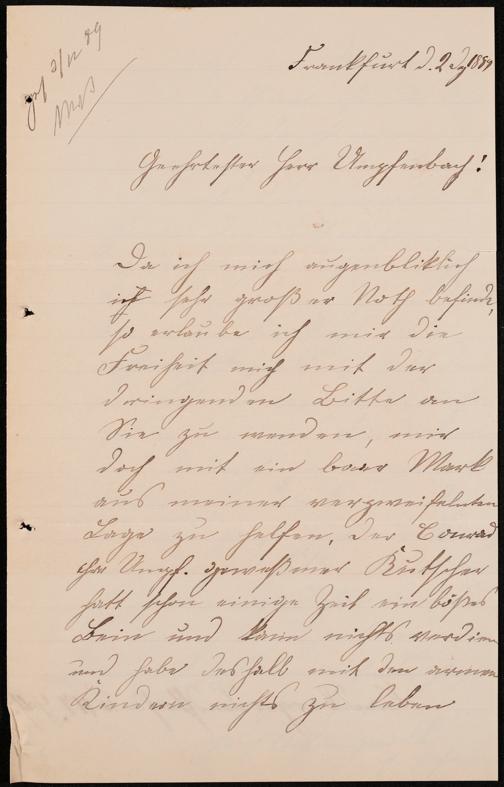 Frankfurt d. 2 1889
Geehrtester Herr Umpfenbach!
Da ich mich augenbliklich
ich sehr großer Noth befinde,
so erlaube ich mir die
Freiheit mich mit der
dringenden Bitte an
Sie zu wenden, mir
doch mit ein baar Mark
aus meiner verzweifelnten
Lage zu helfen, der Conrad
Umpf. geweßener Kutscher
hatt schon einige Zeit ein bößes
Bein und kann nichts verdien
und habe deshalb mit den armen
Kindern nichts zu leben